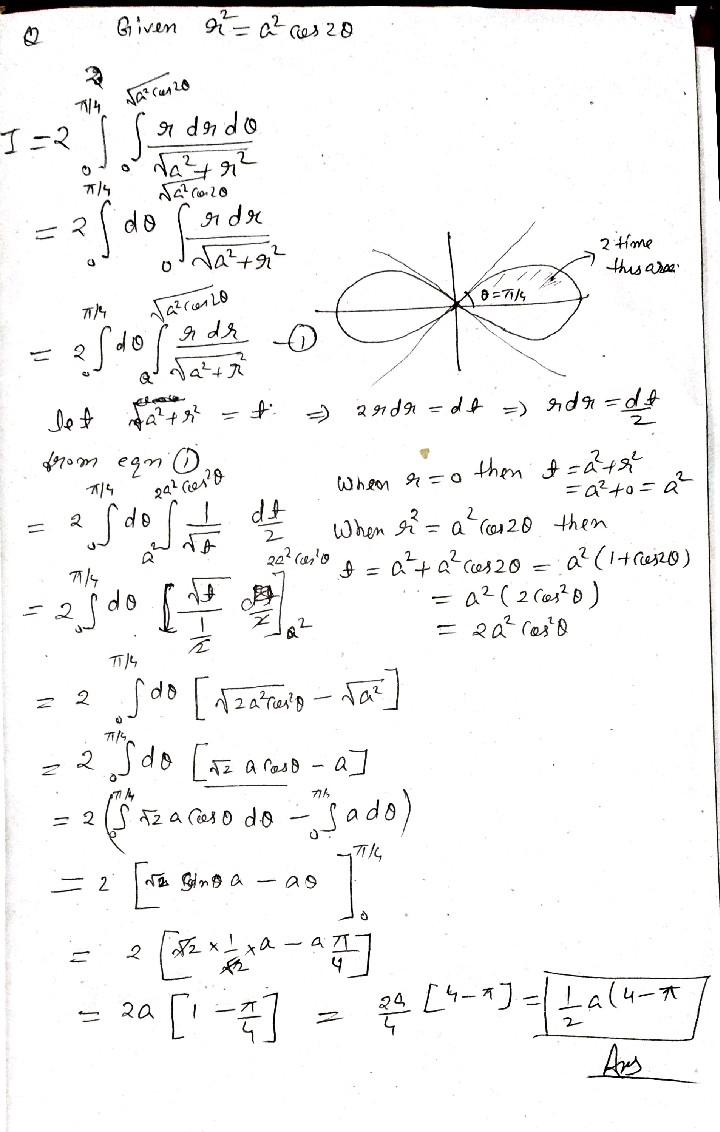 Q Given r² = a² cos 2θ
I = 2 ∫₀^{π/4} ∫₀^{√a² cos 2θ} r dr dθ / √a² + r²
= 2 ∫₀^{π/4} dθ ∫₀^{√a² cos 2θ} r dr / √a² + r²
2 time
this area
θ = π/4
= 2 ∫₀^{π/4} dθ ∫₀^{√a² cos 2θ} r dr / √a² + r² — ①
let a² + r² = t ⇒ 2r dr = dt ⇒ r dr = dt/2
from eqn ①
When r = 0 then t = a² + r²
= a² + 0 = a²
= 2 ∫₀^{π/4} dθ ∫_{a²}^{2a² cos² θ} 1/√t dt/2
When r² = a² cos 2θ then
t = a² + a² cos 2θ = a² (1 + cos 2θ)
= a² (2 cos² θ)
= 2a² cos² θ
= 2 ∫₀^{π/4} dθ [√t / (1/2) /2]_{a²}^{2a² cos² θ}
= 2 ∫₀^{π/4} dθ [√2a² cos² θ − √a²]
= 2 ∫₀^{π/4} dθ [√2 a cos θ − a]
= 2 (∫₀^{π/4} √2 a cos θ dθ − ∫₀^{π/4} a dθ)
= 2 [√2 sin θ a − aθ]₀^{π/4}
= 2 [√2 × 1/√2 × a − a π/4]
= 2a [1 − π/4] = 2a/4 [4 − π] = 1/2 a(4 − π
Ans